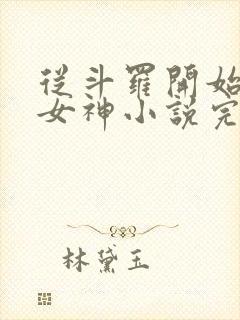 從斗羅開始
女神小說完
林黛玉